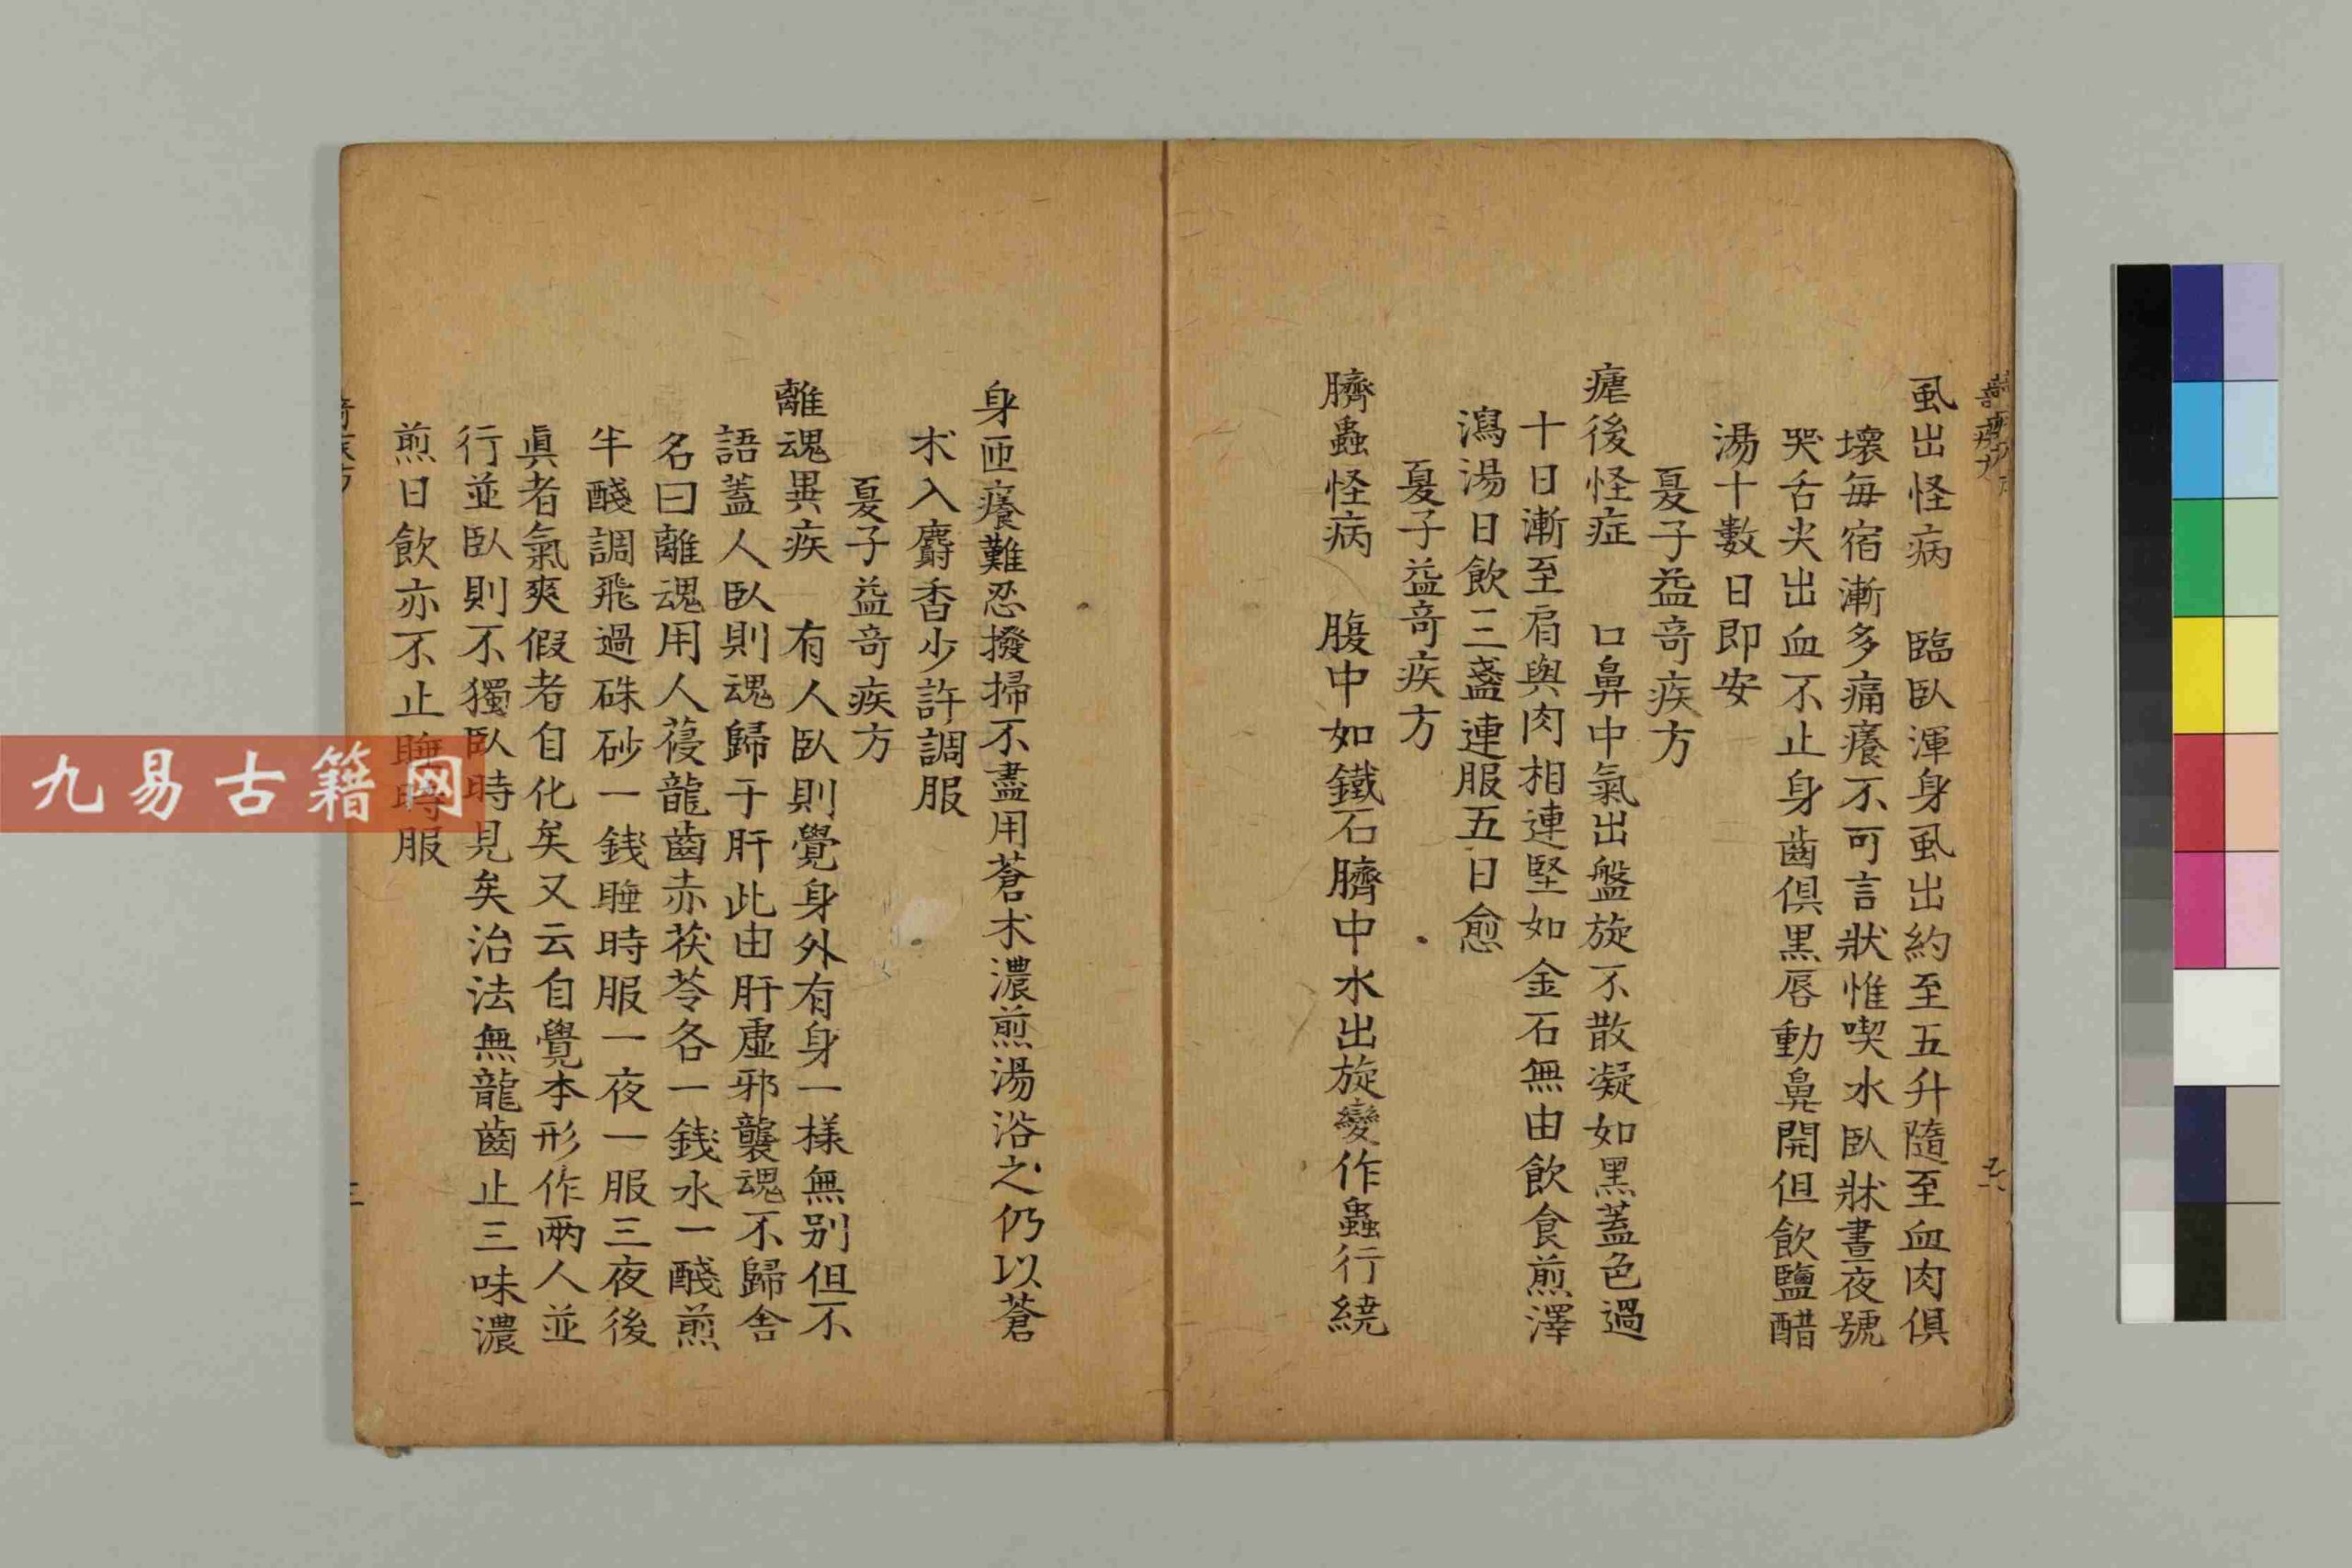 虱出怪病　臨臥渾身虱出約至五升隨至血肉俱
壞每宿漸多痛癢不可言狀惟喫水臥牀晝夜號
哭舌尖出血不止身齒俱黑唇動鼻開但飲鹽醋
湯十數日即安
夏子益奇疾方
瘧後怪症　口鼻中氣出盤旋不散凝如黑蓋色過
十日漸至肩與肉相連堅如金石無由飲食煎澤
瀉湯日飲三盞連服五日愈
夏子益奇疾方
臍蟲怪病　腹中如鐵石臍中水出旋變作蟲行繞
身匝癢難忍撥掃不盡用蒼朮濃煎湯浴之仍以蒼
朮入麝香少許調服
夏子益奇疾方
離魂異疾　有人臥則覺身外有身一樣無別但不
語蓋人臥則魂歸于肝此由肝虛邪襲魂不歸舍
名曰離魂用人葠龍齒赤茯苓各一錢水一醆煎
半醆調飛過硃砂一錢睡時服一夜一服三夜後
眞者氣爽假者自化矣又云自覺本形作兩人並
行並臥則不獨臥時見矣治法無龍齒止三味濃
煎日飲亦不止睡時服
九易古籍网